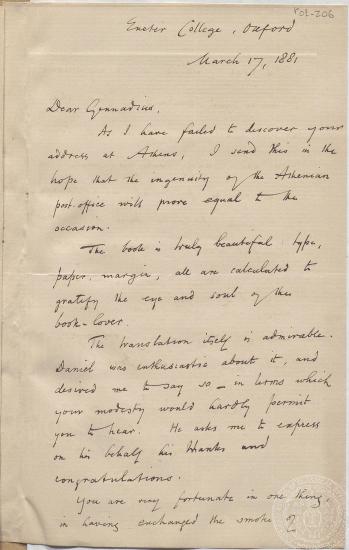 POL-206
Exeter College, Oxford
March 17, 1881
Dear Gennadius,
As I have failed to discover your
address at Athens, I send this in the
hope that the ingenuity of the Athenian
post-office will prove equal to the
occasion.
The book is truly beautiful: type,
paper, margin, all are calculated to
gratify the eye and soul of the
book-lover.
The translation itself is admirable.
Daniel was enthusiastic about it, and
desired me to say so — in terms which
your modesty would hardly permit
you to hear. He asks me to express
on his behalf his thanks and
congratulations.
You are very fortunate in one thing,
in having exchanged the smoke